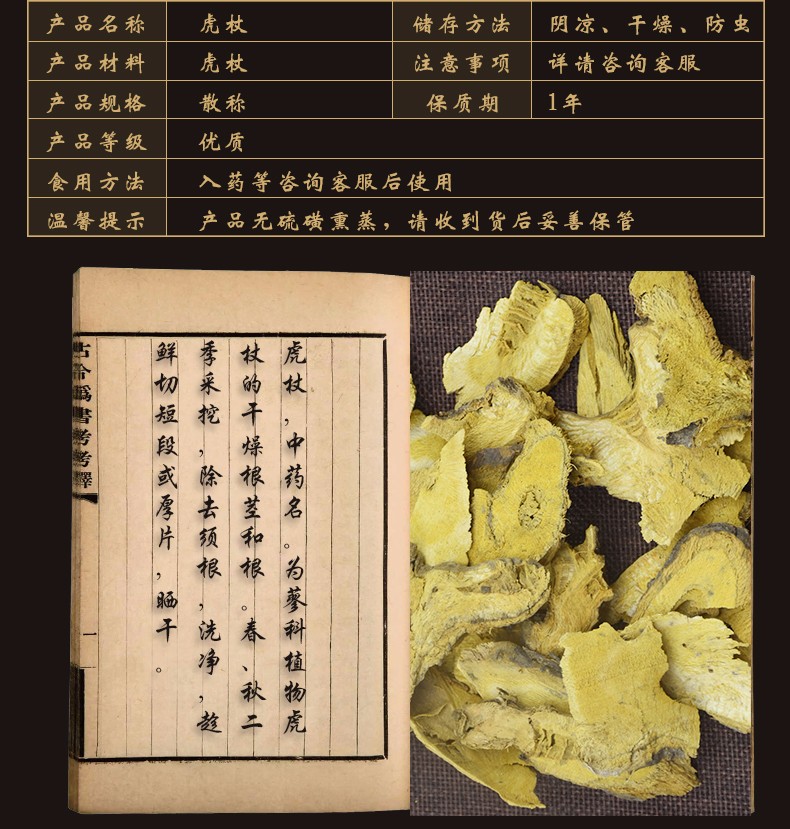 产品名称 虎杖 储存方法 阴凉、干燥、防虫
产品材料 虎杖 注意事项 详请咨询客服
产品规格 散称 保质期 1年
产品等级 优质
食用方法 入药等咨询客服后使用
温馨提示 产品无硫磺熏蒸，请收到货后妥善保管
虎杖，中药名。为蓼科植物虎
杖的干燥根茎和根。春、秋二
季采挖，除去须根，洗净，趁
鲜切短段或厚片，晒干。
古今偽書考考釋
一